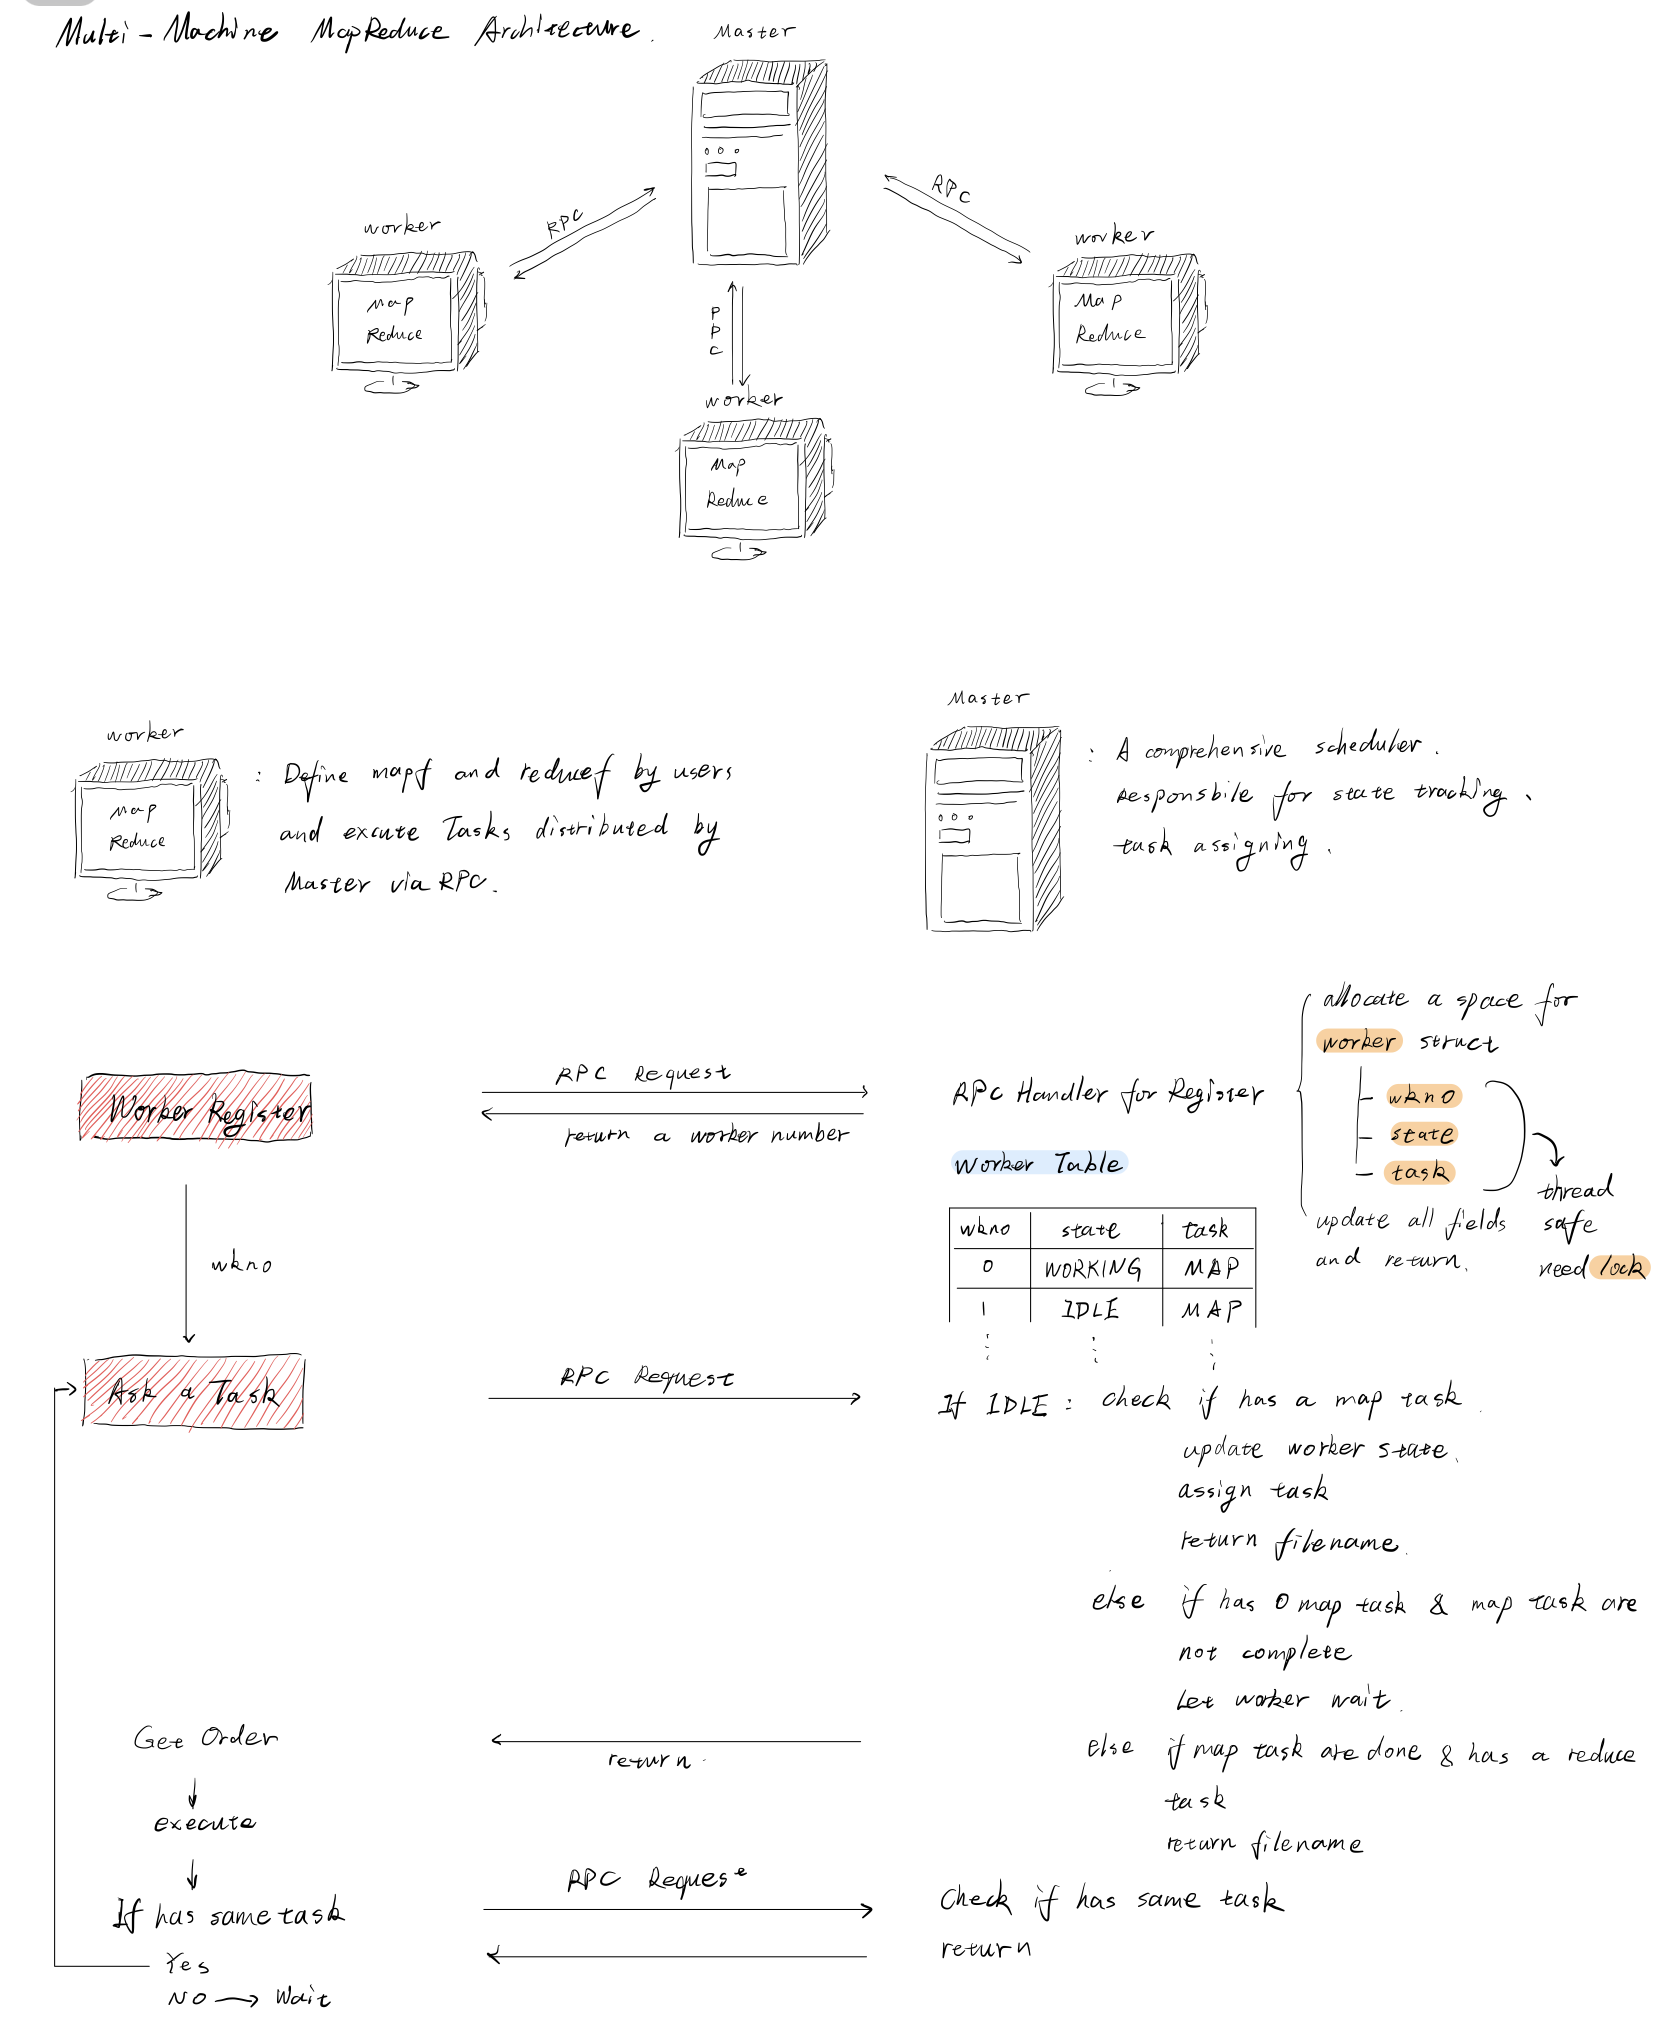 Multi-Machine MapReduce Architecture.
Master
RPC
RPC
worker
Map
Reduce
worker
Map
Reduce
PPC
worker
Map
Reduce
Master
worker
Map
Reduce
: Define mapf and reducef by users
and excute Tasks distributed by
Master via RPC.
: A comprehensive scheduler.
Responsbile for state tracking、
task assigning.
Worker Register
RPC Request
return a worker number
RPC Handler for Register
allocate a space for
worker struct
wkno
state
task
thread
safe
need lock
update all fields
and return.
Worker Table
wkno state task
0 WORKING MAP
1 IDLE MAP
wkno
Ask a Task
RPC Request
If IDLE: check if has a map task.
update worker state.
assign task
return filename.
else if has 0 map task & map task are
not complete
Let worker wait.
else if map task are done & has a reduce
task
return filename
Get Order
return.
execute
If has same task
RPC Request
Check if has same task
return
Yes
NO → Wait